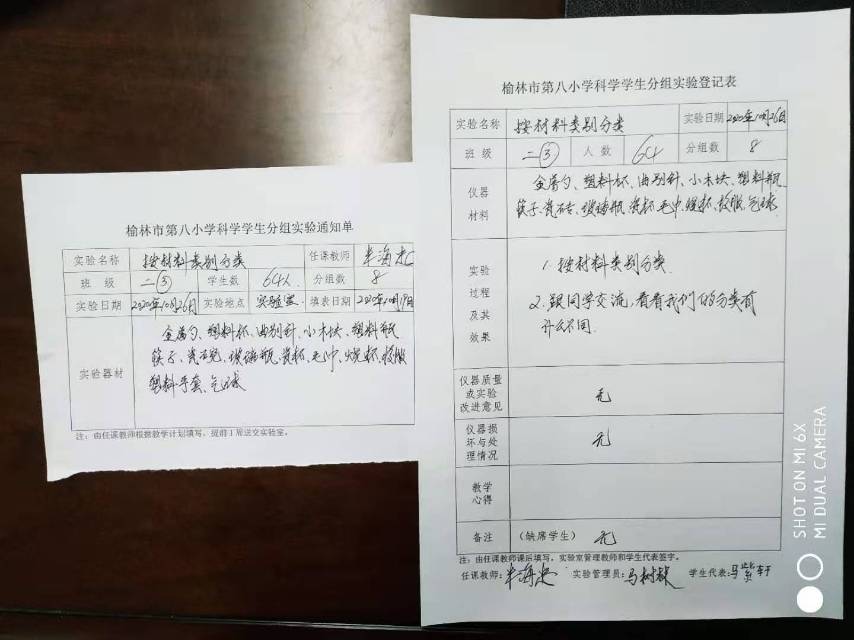 榆林市第八小学科学学生分组实验通知单
实验名称 按材料类别分类 任课教师
班 级 二③ 学生数 64人 分组数 8
实验日期 2020年10月26日 实验地点 实验室 填表日期 2020年10月19日
实验器材
金属勺、塑料杯、曲别针、小木块、塑料瓶
筷子、瓷 玻璃瓶、瓷杯、毛巾、烧杯、校服
塑料手套、气球
注：由任课教师根据教学计划填写，提前1周送交实验室。
榆林市第八小学科学学生分组实验登记表
实验名称 按材料类别分类 实验日期 2020年10月26日
班 级 二③ 人 数 64 分组数 8
仪器
材料
金属勺、塑料杯、曲别针、小木块、塑料瓶
筷子、瓷 玻璃瓶、瓷杯、毛巾、烧杯、校服、气球
实验
过程
及其
效果
1. 按材料类别分类.
2. 跟同学交流，看看我们的分类有
什么不同.
仪器质量
或实验
改进意见
无
仪器损
坏与处
理情况
无
教学
心得
备注 （缺席学生） 无
注：由任课教师课后填写，实验室管理教师和学生代表签字。
任课教师： 实验管理员：马树 学生代表：马紫轩
SHOT ON MI 6X
MI DUAL CAMERA